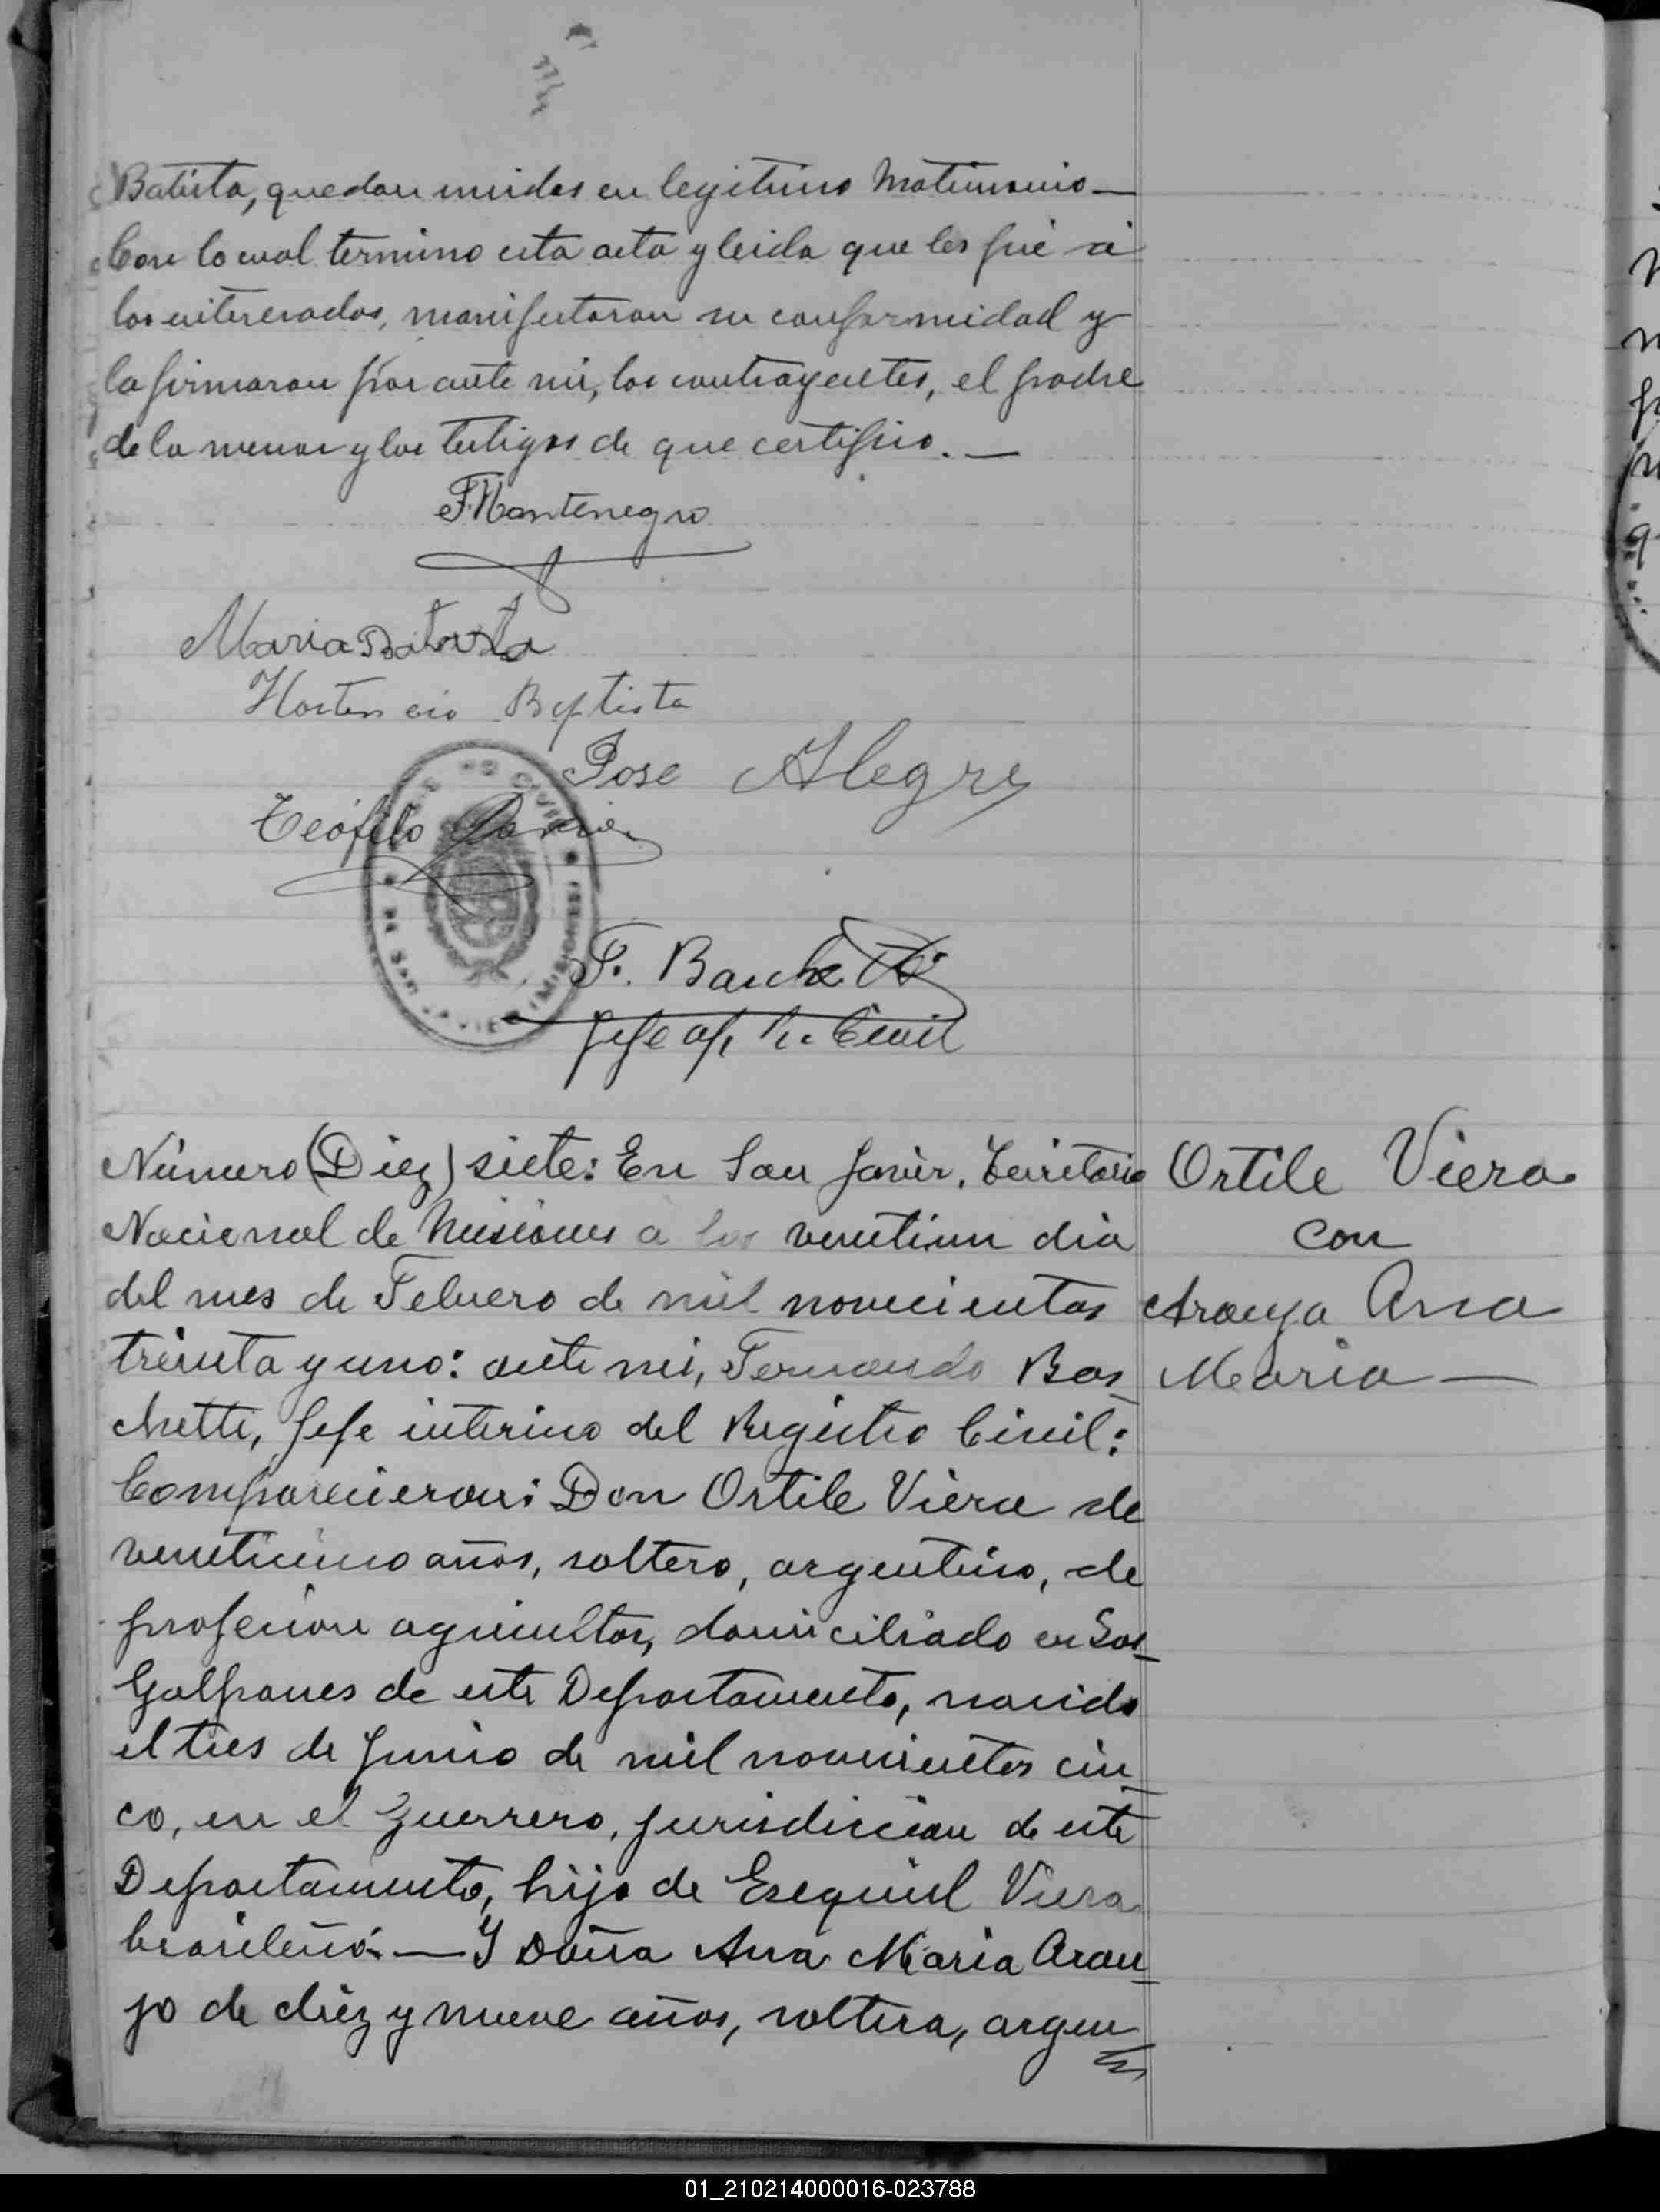 Batista, quedan unidos en legitimo Matrimonio —
Con lo cual termino esta acta y leida que les fué á
los interesados, manifestaron su conformidad y
la firmaron por ante mi, los contrayentes, el padre
de la menor y los testigos de que certifico. —
F. Montenegro
Maria Batista
Hortencio Beptista
Jose Alegre
Teófilo
F. Baschetti
Jefe of. R. Civil
Número (Diez) siete: En San Javier, Territorio
Ortile Viera
Nacional de Misiones a los veintiun dia
con
del mes de Febrero de mil novecientos
Arauja Ana
treinta y uno: ante mi, Fernando Bas
Maria —
chetti, Jefe interino del Registro Civil:
Comparecieron: Don Ortile Viera de
veinticinco años, soltero, argentino, de
profesion agricultor, domiciliado en Los
Galpones de este Departamento, nacido
el tres de Junio de mil novecientos cin-
co, en el Guerrero, jurisdiccion de este
Departamento, hijo de Esequiel Viera
brasileño. — Y Doña Ana Maria Arau-
jo de diez y nueve años, soltera, argen
01_210214000016-023788